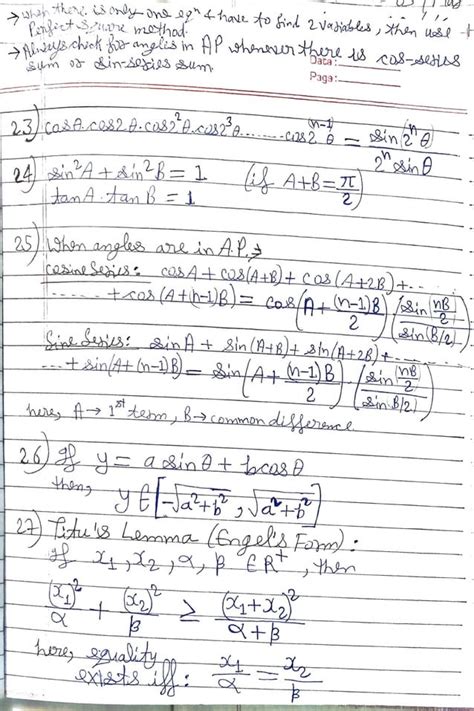 → when there is only one eqⁿ & have to find 2 variables, then use
Perfect square method.
→ Always check for angles in AP whenever there is cos-series
sum or sin-series sum.
Date:
Page:
23) cosθ.cos2θ.cos2²θ.cos2³θ........cos2^(n-1)θ = sin(2ⁿθ)/2ⁿsinθ
24) sin²A + sin²B = 1
tanA.tanB = 1 (if A+B = π/2)
25) When angles are in A.P. →
Cosine Series: cosA + cos(A+B) + cos(A+2B)+...
......+cos(A+(n-1)B) = cos(A+(n-1)B/2) (sin(nB/2)/sin(B/2))
Sine Series: sinA + sin(A+B) + sin(A+2B)+.....
..+ sin(A+(n-1)B) = sin(A+(n-1)B/2) . (sin(nB/2)/sin(B/2))
here, A → 1st term, B → common difference
26) If y = a sinθ + b cosθ
then,
y ∈ [-√a²+b², √a²+b²]
27) Titu's Lemma (Engel's Form):
If x₁, x₂, α, β ∈ R⁺, then
(x₁)²/α + (x₂)²/β ≥ (x₁+x₂)²/α+β
here, equality
exists iff: x₁/α = x₂/β